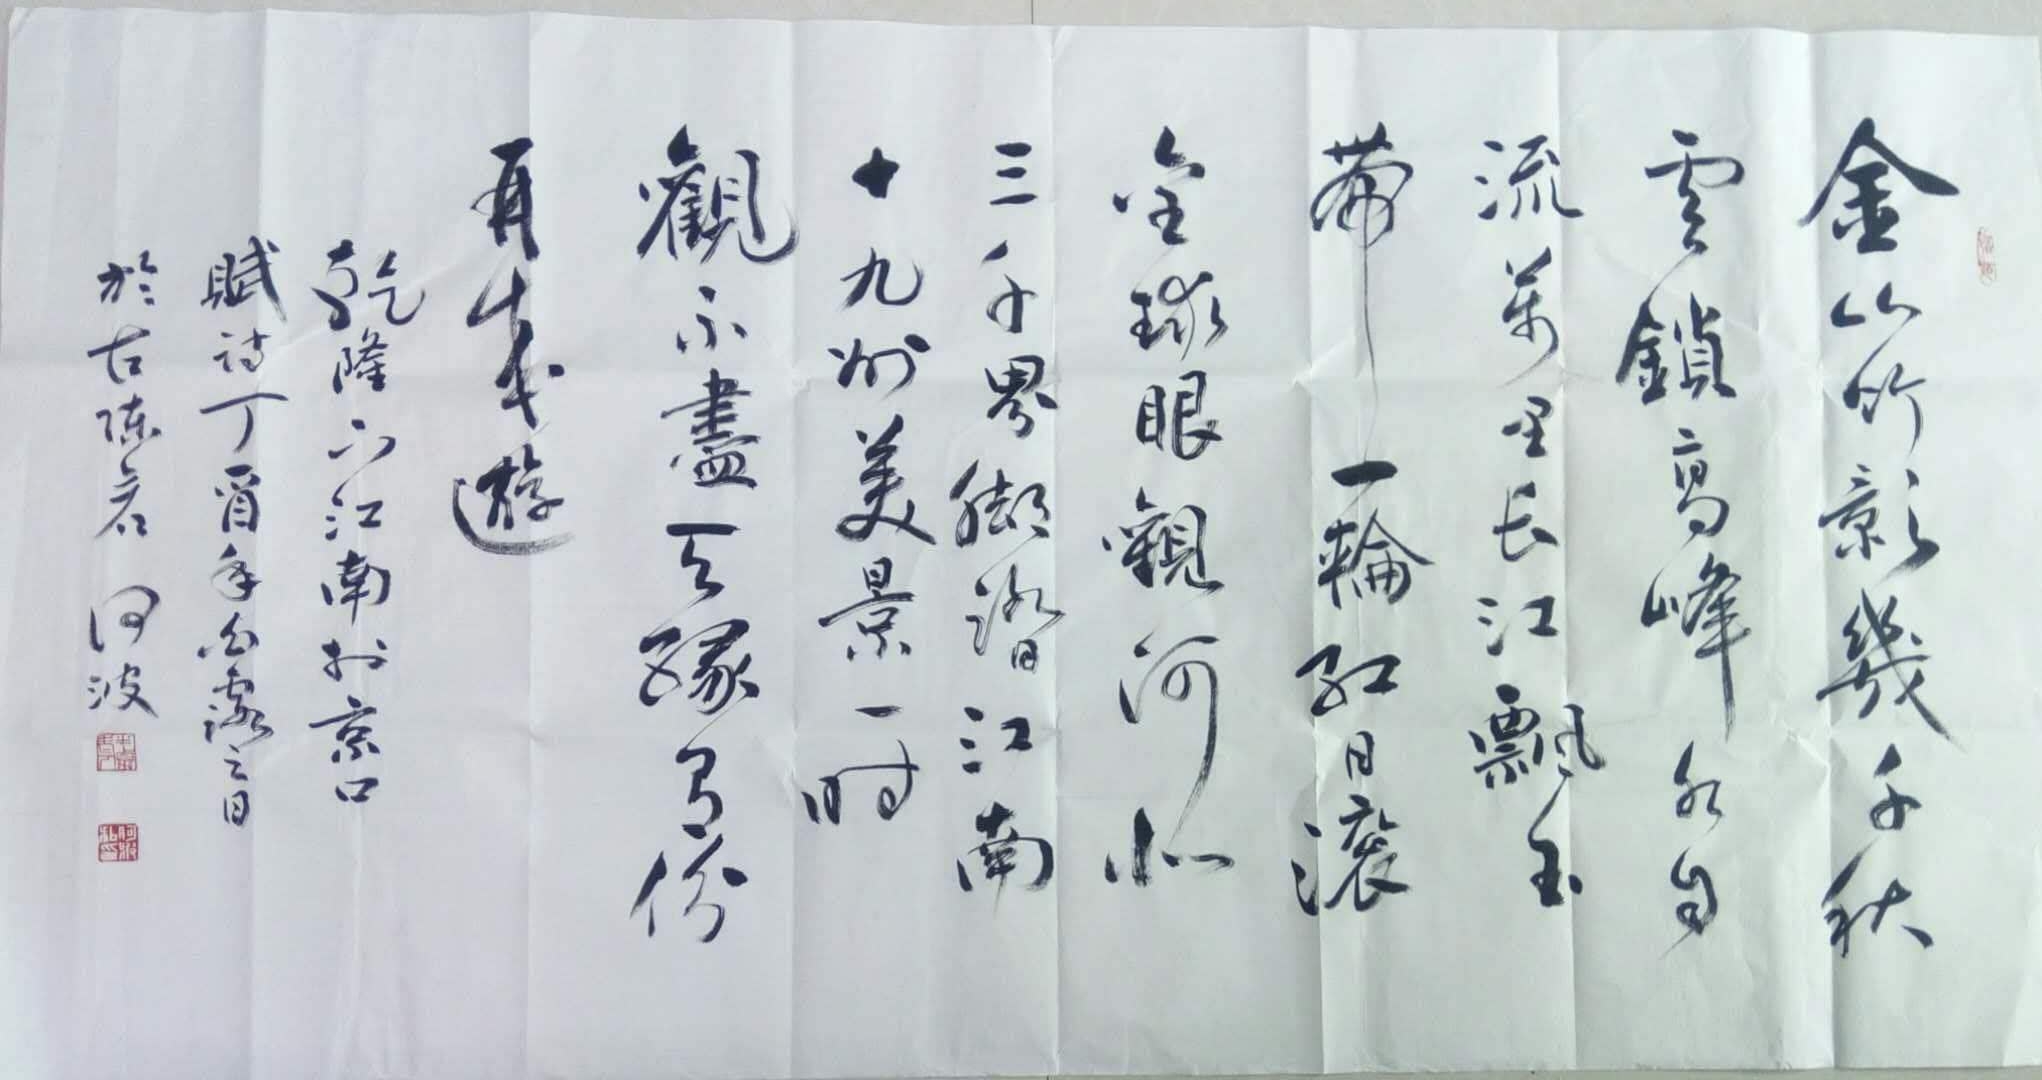 金山竹影幾千秋
雲鎖高峰水自
流萬里长江飄玉
帶一輪紅日滾
金球眼觀河北
三千界腳踏江南
十九州美景一时
觀不盡天緣有份
再來遊
乾隆下江南於京口
賦诗丁酉年白露之日
於古陳君 阿波